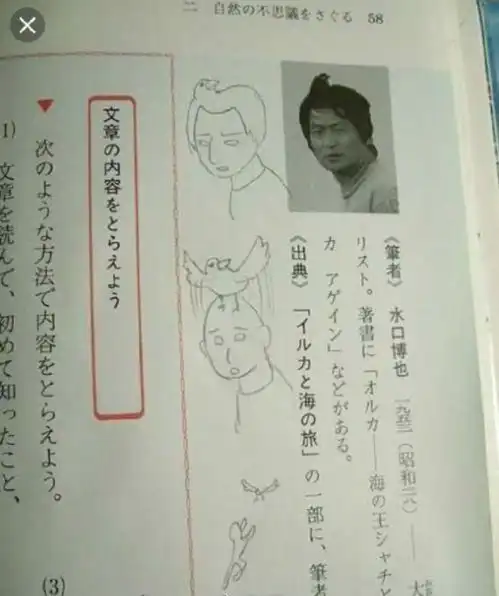 二 自然の不思議をさぐる 58
《筆者》 水口博也 一九五三(昭和二八)―― 大
リスト。著書に「オルカ――海の王シャチと
カ アゲイン」などがある。
《出典》 「イルカと海の旅」の一部に、筆者
文章の内容をとらえよう
▼ 次のような方法で内容をとらえよう。
1) 文章を読んで、初めて知ったこと、
(3)